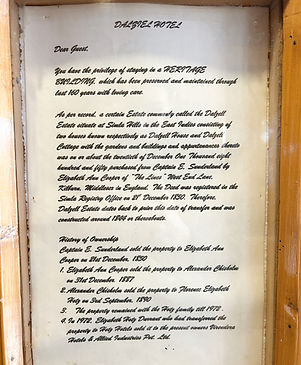 DALZIEL HOTEL
Dear Guest,
You have the privilege of staying in a HERITAGE
BUILDING, which has been preserved and maintained through
last 160 years with loving care.
As per record, a certain Estate commonly called the Dalzell
Estate situate at Simla Hills in the East Indies consisting of
two houses known respectively as Dalzell House and Dalzell
Cottage with the gardens and buildings and appurtenances thereto
was on or about the twentieth of December One Thousand eight
hundred and fifty purchased from Captain E. Sunderland by
Elizabeth Ann Corper of "The Lines" West End Lane,
Kilburn, Middlesex in England. The Deed was registered in the
Simla Registry Office on 21st December 1850. Therefore,
Dalzell Estate dates back to prior this date of transfer and was
constructed around 1844 or thereabouts.
History of Ownership
Captain E. Sunderland sold the property to Elizabeth Ann
Corper on 21st December, 1850
1. Elizabeth Ann Corper sold the property to Alexander Chisholm
on 31st December, 1887
2. Alexander Chisholm sold the property to Florence Elizabeth
Hotz on 3rd September, 1890
3. The property remained with the Hotz family till 1972.
4. In 1972, Elizabeth Hotz Durrant who had transferred the
property to Hotz Hotels sold it to the present owners Virendera
Hotels & Allied Industries Pvt. Ltd.